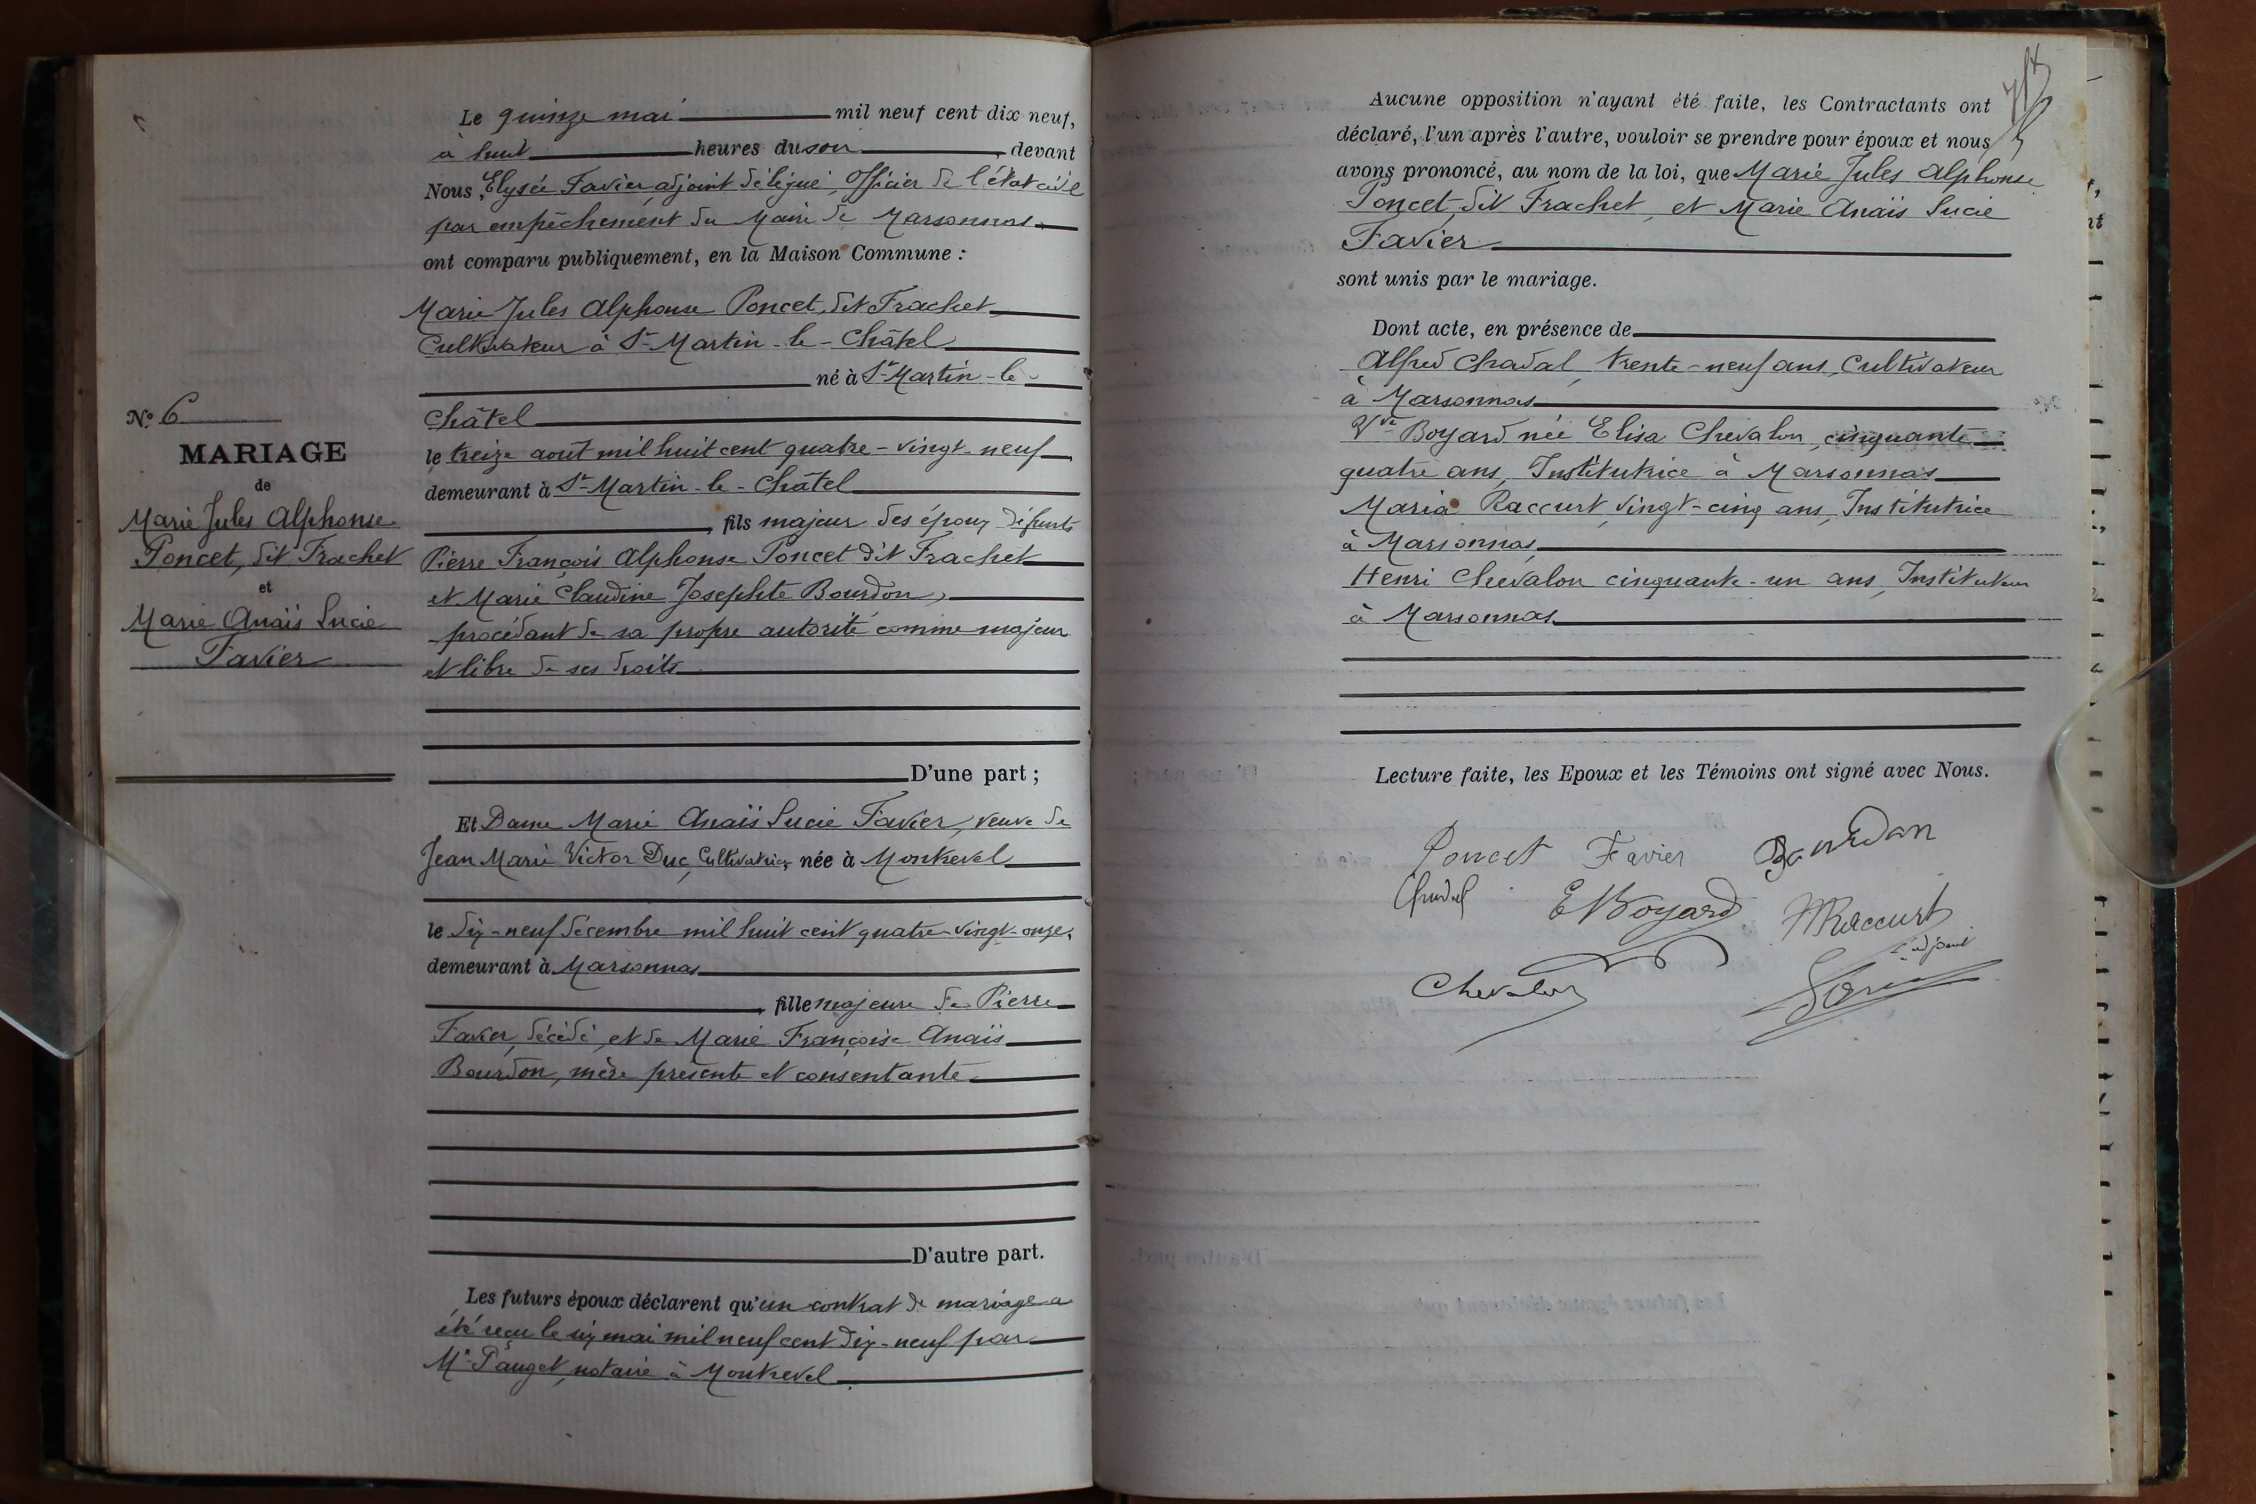 N° 6
MARIAGE
de
Marie Jules Alphonse
Poncet, dit Frachet
et
Marie Anaïs Lucie
Favier
Le quinze mai mil neuf cent dix neuf,
à huit heures du soir, devant
Nous, Elysée Favier adjoint délégué, Officier de l'état civil
par empêchement du Maire de Marsonnas
ont comparu publiquement, en la Maison Commune :
Marie Jules Alphonse Poncet, dit Frachet
Cultivateur à St-Martin-le-Châtel
né à St-Martin-le-
Châtel
le treize août mil huit cent quatre-vingt-neuf
demeurant à St-Martin-le-Châtel
, fils majeur des époux défunts
Pierre François Alphonse Poncet dit Frachet
et Marie Claudine Josephte Bourdon,
procédant de sa propre autorité comme majeur
et libre de ses droits
D'une part ;
Et Dame Marie Anaïs Lucie Favier, veuve de
Jean Marie Victor Duc, Cultivatrice, née à Montrevel
le dix-neuf décembre mil huit cent quatre-vingt-onze,
demeurant à Marsonnas
, fille majeure de Pierre
Favier, décédé, et de Marie Françoise Anaïs
Bourdon, mère présente et consentante
D'autre part.
Les futurs époux déclarent qu'un contrat de mariage a
été reçu le six mai mil neuf cent dix-neuf par
Me Pauget, notaire à Montrevel
Aucune opposition n'ayant été faite, les Contractants ont
déclaré, l'un après l'autre, vouloir se prendre pour époux et nous
avons prononcé, au nom de la loi, que Marie Jules Alphonse
Poncet, dit Frachet, et Marie Anaïs Lucie
Favier
sont unis par le mariage.
Dont acte, en présence de
Alfred Chadal, trente-neuf ans, Cultivateur
à Marsonnas
Vve Boyard née Elisa Chevalon, cinquante
quatre ans, Institutrice à Marsonnas
Maria Raccurt, vingt-cinq ans, Institutrice
à Marsonnas
Henri Chevalon cinquante-un ans, Instituteur
à Marsonnas
Lecture faite, les Epoux et les Témoins ont signé avec Nous.
Poncet Favier Bourdon
Chadal E Boyard MRaccurt
Chevalon
L'adjoint
Favier